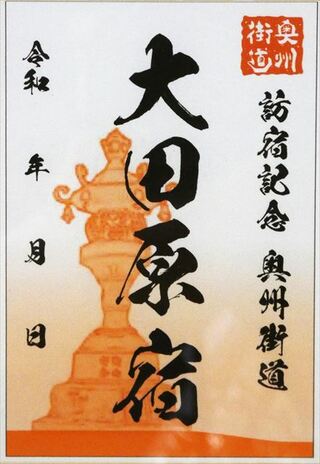 奥州
街道
訪宿記念 奥州街道
大田原宿
令和 年 月 日